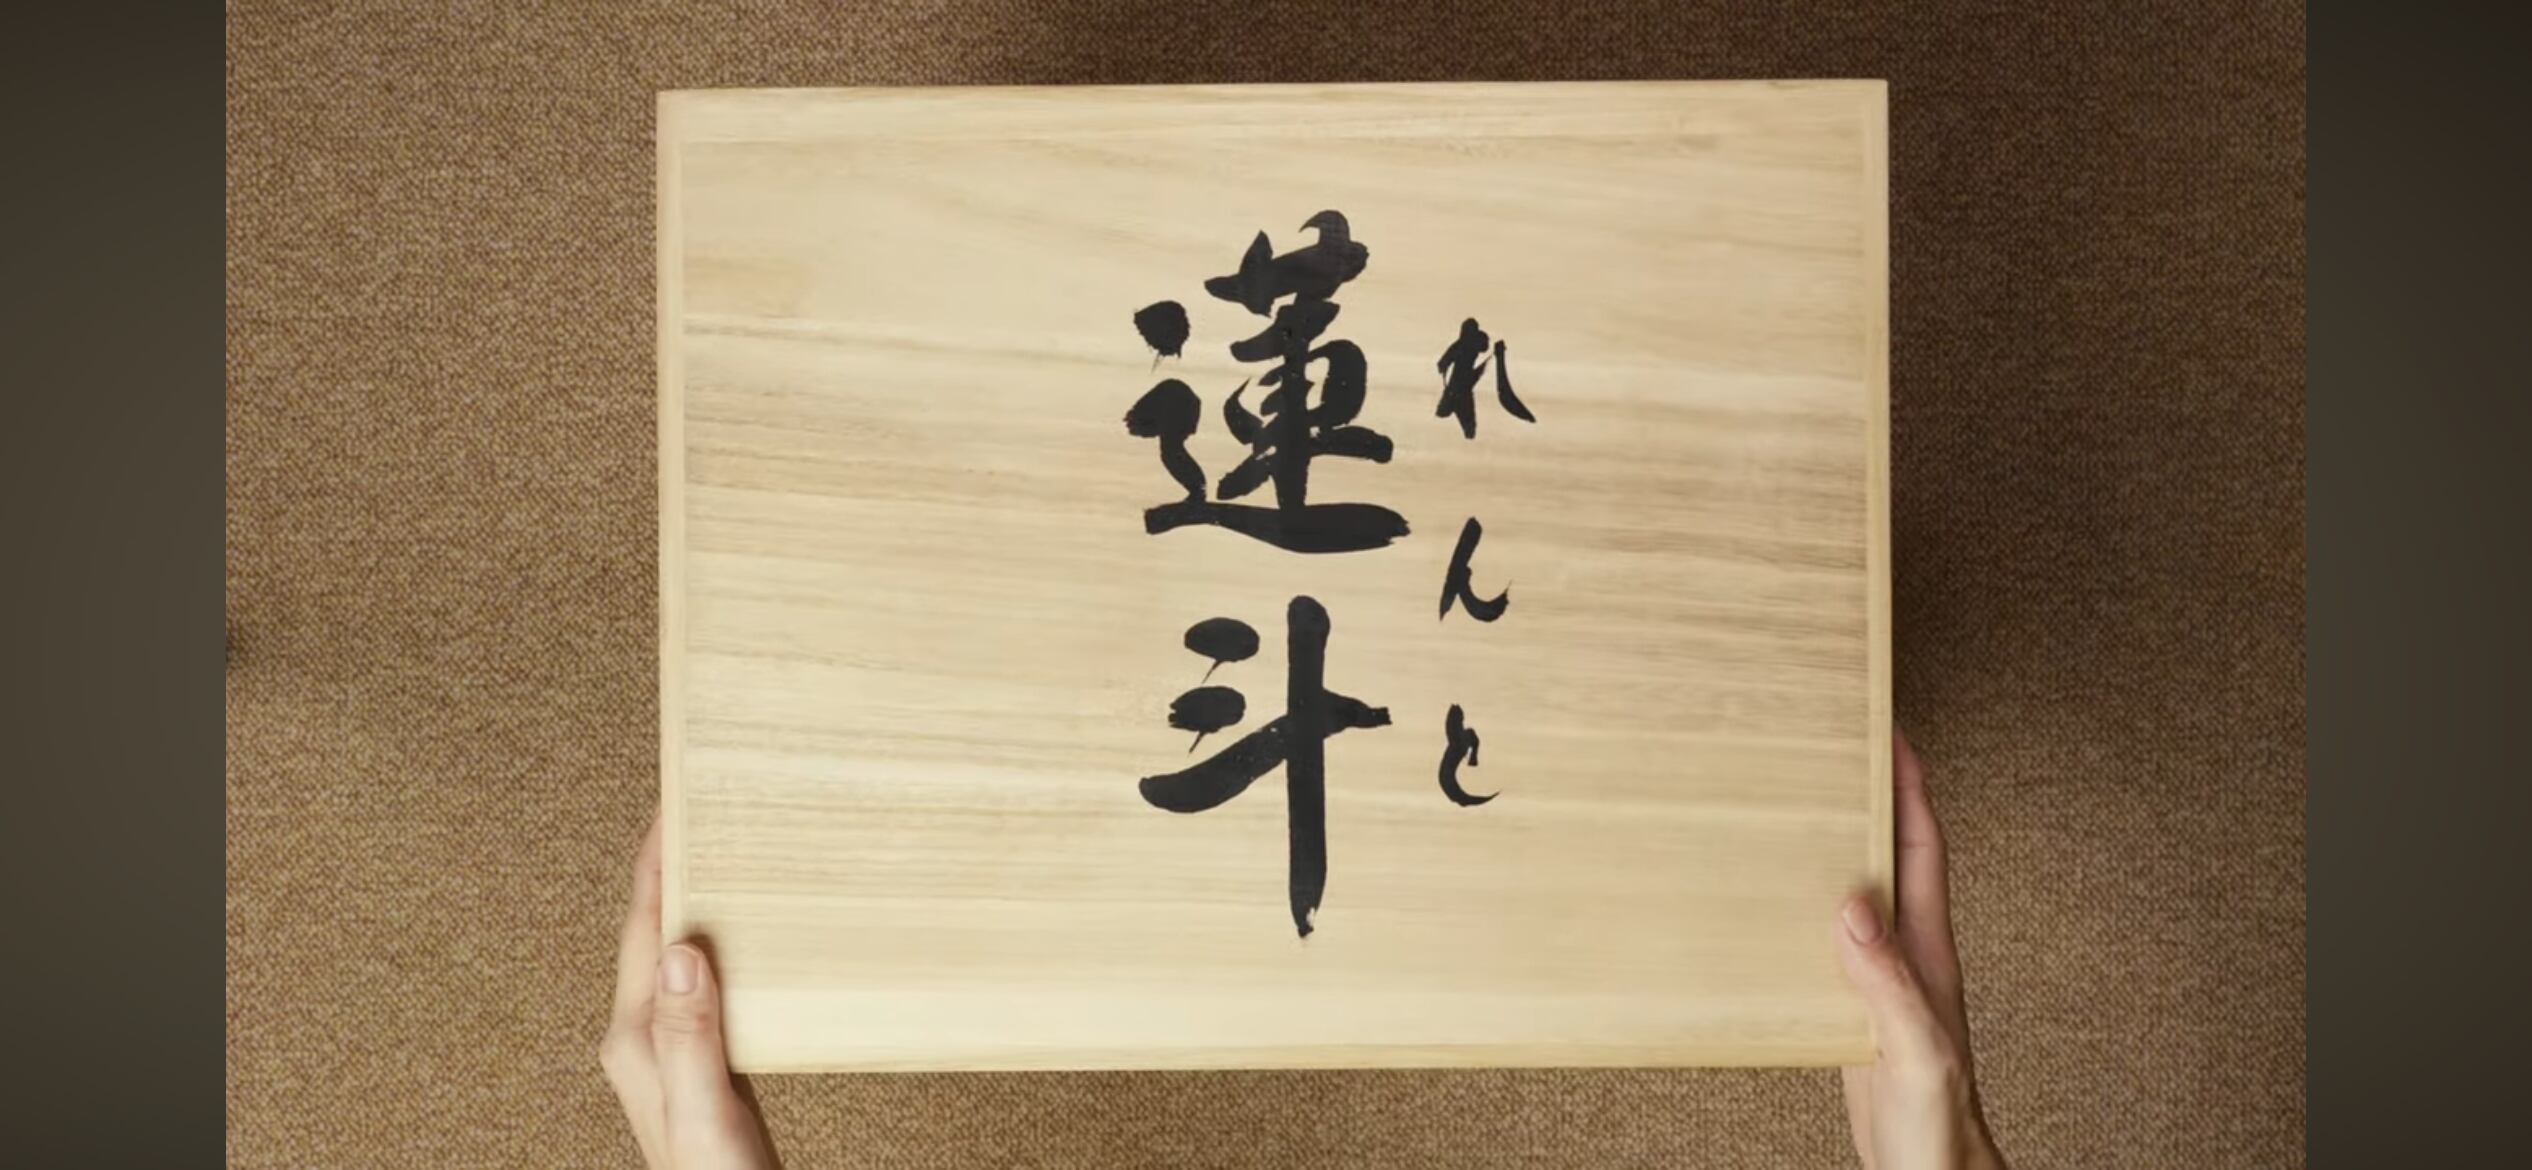 れんと
蓮斗